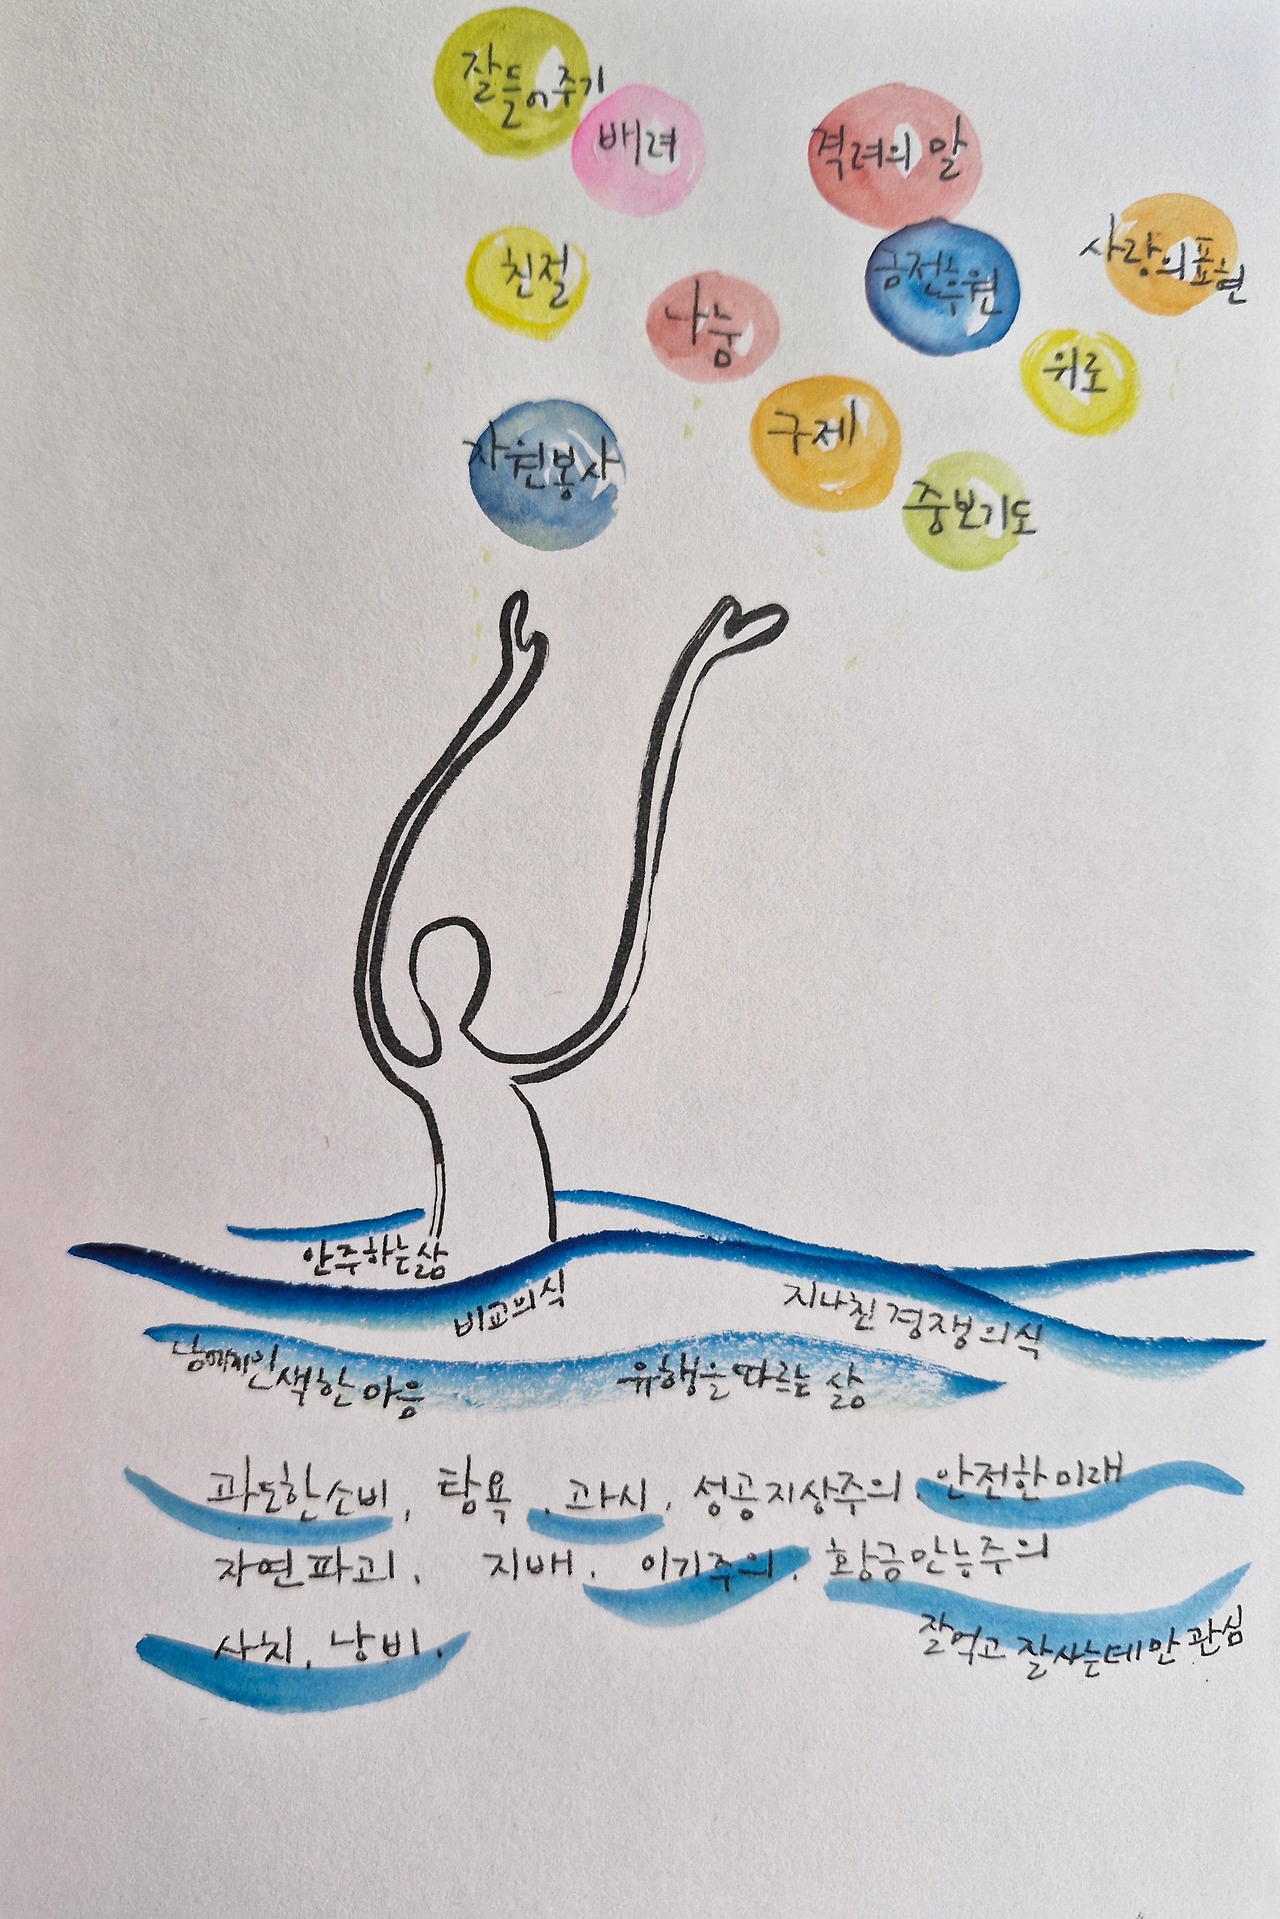 잘 들어주기
배려
격려의 말
사랑의 표현
친절
금전후원
나눔
위로
구제
자원봉사
중보기도
안주하는 삶
비교의식
지나친 경쟁의식
남에게 인색한 마음
유행을 따르는 삶
과도한 소비, 탐욕, 과시, 성공지상주의, 안전한 미래
자연파괴, 지배, 이기주의, 황금만능주의
잘먹고 잘사는데만 관심
사치, 낭비,